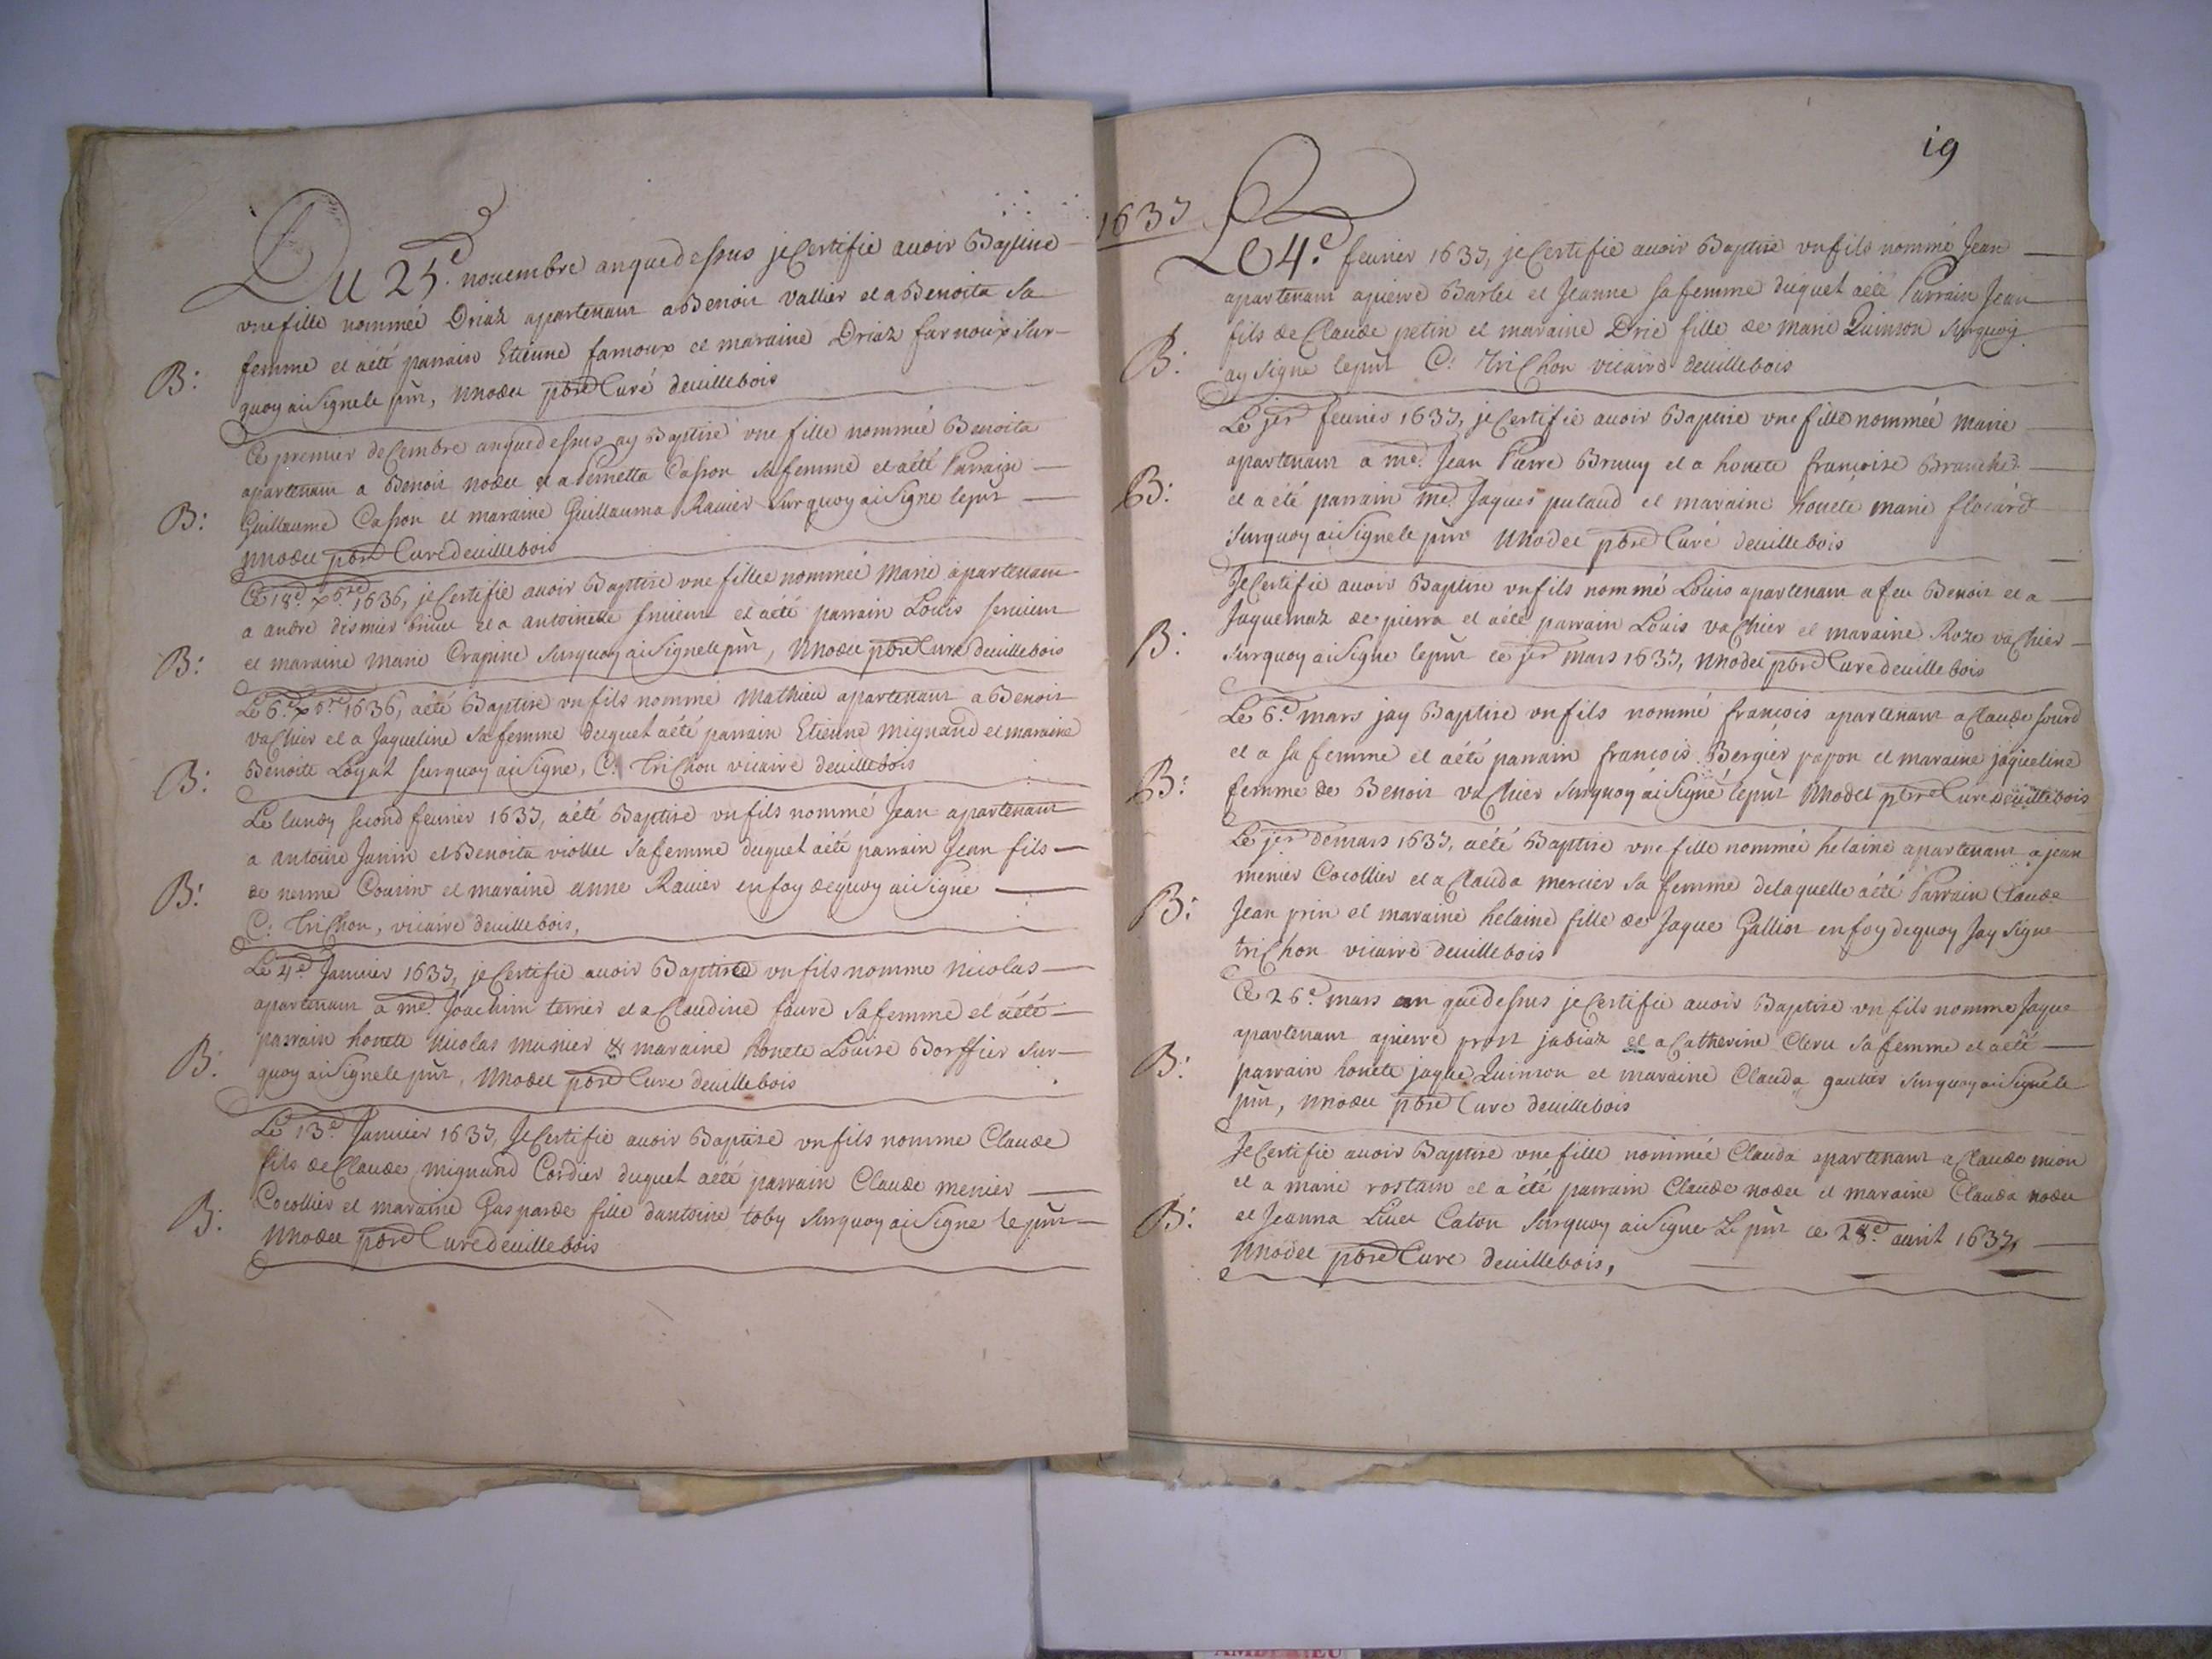 Du 25e. nouembre anquedessus je Certifie auoir Baptisé
vne fille nommée Driaz apartenant a Benoit Vallier et a Benoita Sa
femme et aété parrain Etienne farnoux et maraine Driaz farnoux Sur-
B: quoy ai Signe le pnt, Unodet pbre Curé deuillebois
Ce premier deCembre anquedessus ay Baptisé vne fille nommée Benoita
apartenant a Benoit nodet et a Pernetta Casson Sa femme et aété Parrain
B: Guillaume Casson et maraine Guillauma Rauier Surquoy ai Signe le pnt
Unodet pbre Curé deuillebois
Ce 18e. xbre 1636, je Certifie auoir Baptisé vne fille nommée Marie apartenant
a andre dismier et a antoinette et aété parrain Louis
B: et maraine Marie Crapine Surquoy ai Signe le pnt, Unodet pbre Curé deuillebois
Le 6e. xbre 1636, aété Baptisé vn fils nommé Mathieu apartenant a Benoit
vaChier et a Jaqueline Sa femme duquet aété parrain Etienne mignand et maraine
B: Benoite Loyat Surquoy ai Signe, C: TriChon vicaire deuillebois
Le lundy second feurier 1637, aété Baptisé vn fils nommé Jean apartenant
a antoine Janin et Benoita viollet Sa femme duquet aété parrain Jean fils
B: de Cousin et maraine anne Rauier en foy dequoy ai Signe
C: TriChon, vicaire deuillebois,
Le 4e. Januier 1637, je Certifie auoir Baptisé vn fils nomme Nicolas
apartenant a me. Joachim terrier et a Claudine faure Sa femme et aété
parrain honete Nicolas munier & maraine honete Louise Borssier Sur-
B: quoy ai Signe le pnt, Unodet pbre Curé deuillebois
Le 13e. Januier 1637, Je Certifie auoir Baptisé vn fils nomme Claude
fils de Claude mignand Cordier duquet aété parrain Claude menier
B: Cocollier et maraine Gasparde fille dantoine toby Surquoy ai Signe le pnt
Unodet pbre Curé deuillebois
19
1637
Le 4e. feurier 1637, je Certifie auoir Baptisé vn fils nommé Jean
apartenant apierre Bartet et Jeanne Sa femme duquet aété Parrain Jean
fils de Claude petin et maraine Drie fille de Marie Quinson Surquoy
B: ay Signe le pnt C: TriChon vicaire deuillebois
Le jer feurier 1637, je Certifie auoir Baptisé vne fille nommée Marie
apartenant a me. Jean Pierre Bruny et a honete francoise Branche
B: et a été parrain me. Jaques putaud et maraine honete marie florard
Surquoy ai Signe le pnt Unodet pbre Curé deuillebois
Je Certifie auoir Baptisé vn fils nommé Louis apartenant a feu Benoit et a
Jaquemaz de pierra et aété parrain Louis vaChier et maraine Roze vaChier
B: Surquoy ai Signe le pnt ce jer mars 1637, Unodet pbre Curé deuillebois
Le 6e. mars jay Baptisé vn fils nommé francois apartenant a Claude sourd
et a sa femme et aété parrain francois Bergier papon et maraine jaqueline
B: femme de Benoit vaChier Surquoy ai Signé le pnt Unodet pbre Curé deuillebois
Le jer demars 1637, aété Baptisé vne fille nommée helaine apartenant a jean
menier Cocollier et a Clauda mercier Sa femme delaquelle aété Parrain Claude
B: Jean prin et maraine helaine fille de Jaque Galliot en foy dequoy Jay Signe
triChon vicaire deuillebois
Ce 26e. mars an que dessus je Certifie auoir Baptisé vn fils nomme Jaque
apartenant apierre prost jabiaz et a Catherine Cleru Sa femme et aété
B: parrain honete jaque Quinson et maraine Clauda gautier Surquoy ai Signé le
pnt, Unodet pbre Curé deuillebois
Je Certifie auoir Baptisé vne fille nommée Clauda apartenant a Claude mion
et a marie rostain et a été parrain Claude nodet et maraine Clauda nodet
B: et Jeanna Liuet Caton Surquoy ai Signe Le pnt ce 28e. auril 1637,
Unodet pbre Curé deuillebois,